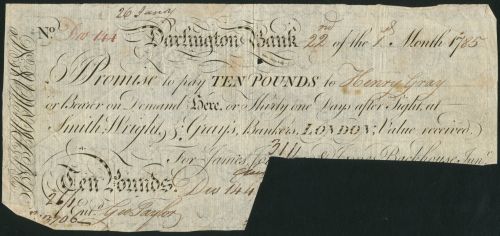 26 Janry
No. Dv 144 Darlington Bank 22nd of the 1st Month 1785
I Promise to pay TEN POUNDS to Henry Gray
or Bearer on Demand Here, or Thirty one Days after Sight, at
Smith Wright, & Gray's, Bankers, LONDON, Value received.
314
For James Backhouse Junr.
Ten Pounds. Dv 144
264
Entd. Geo Taylor